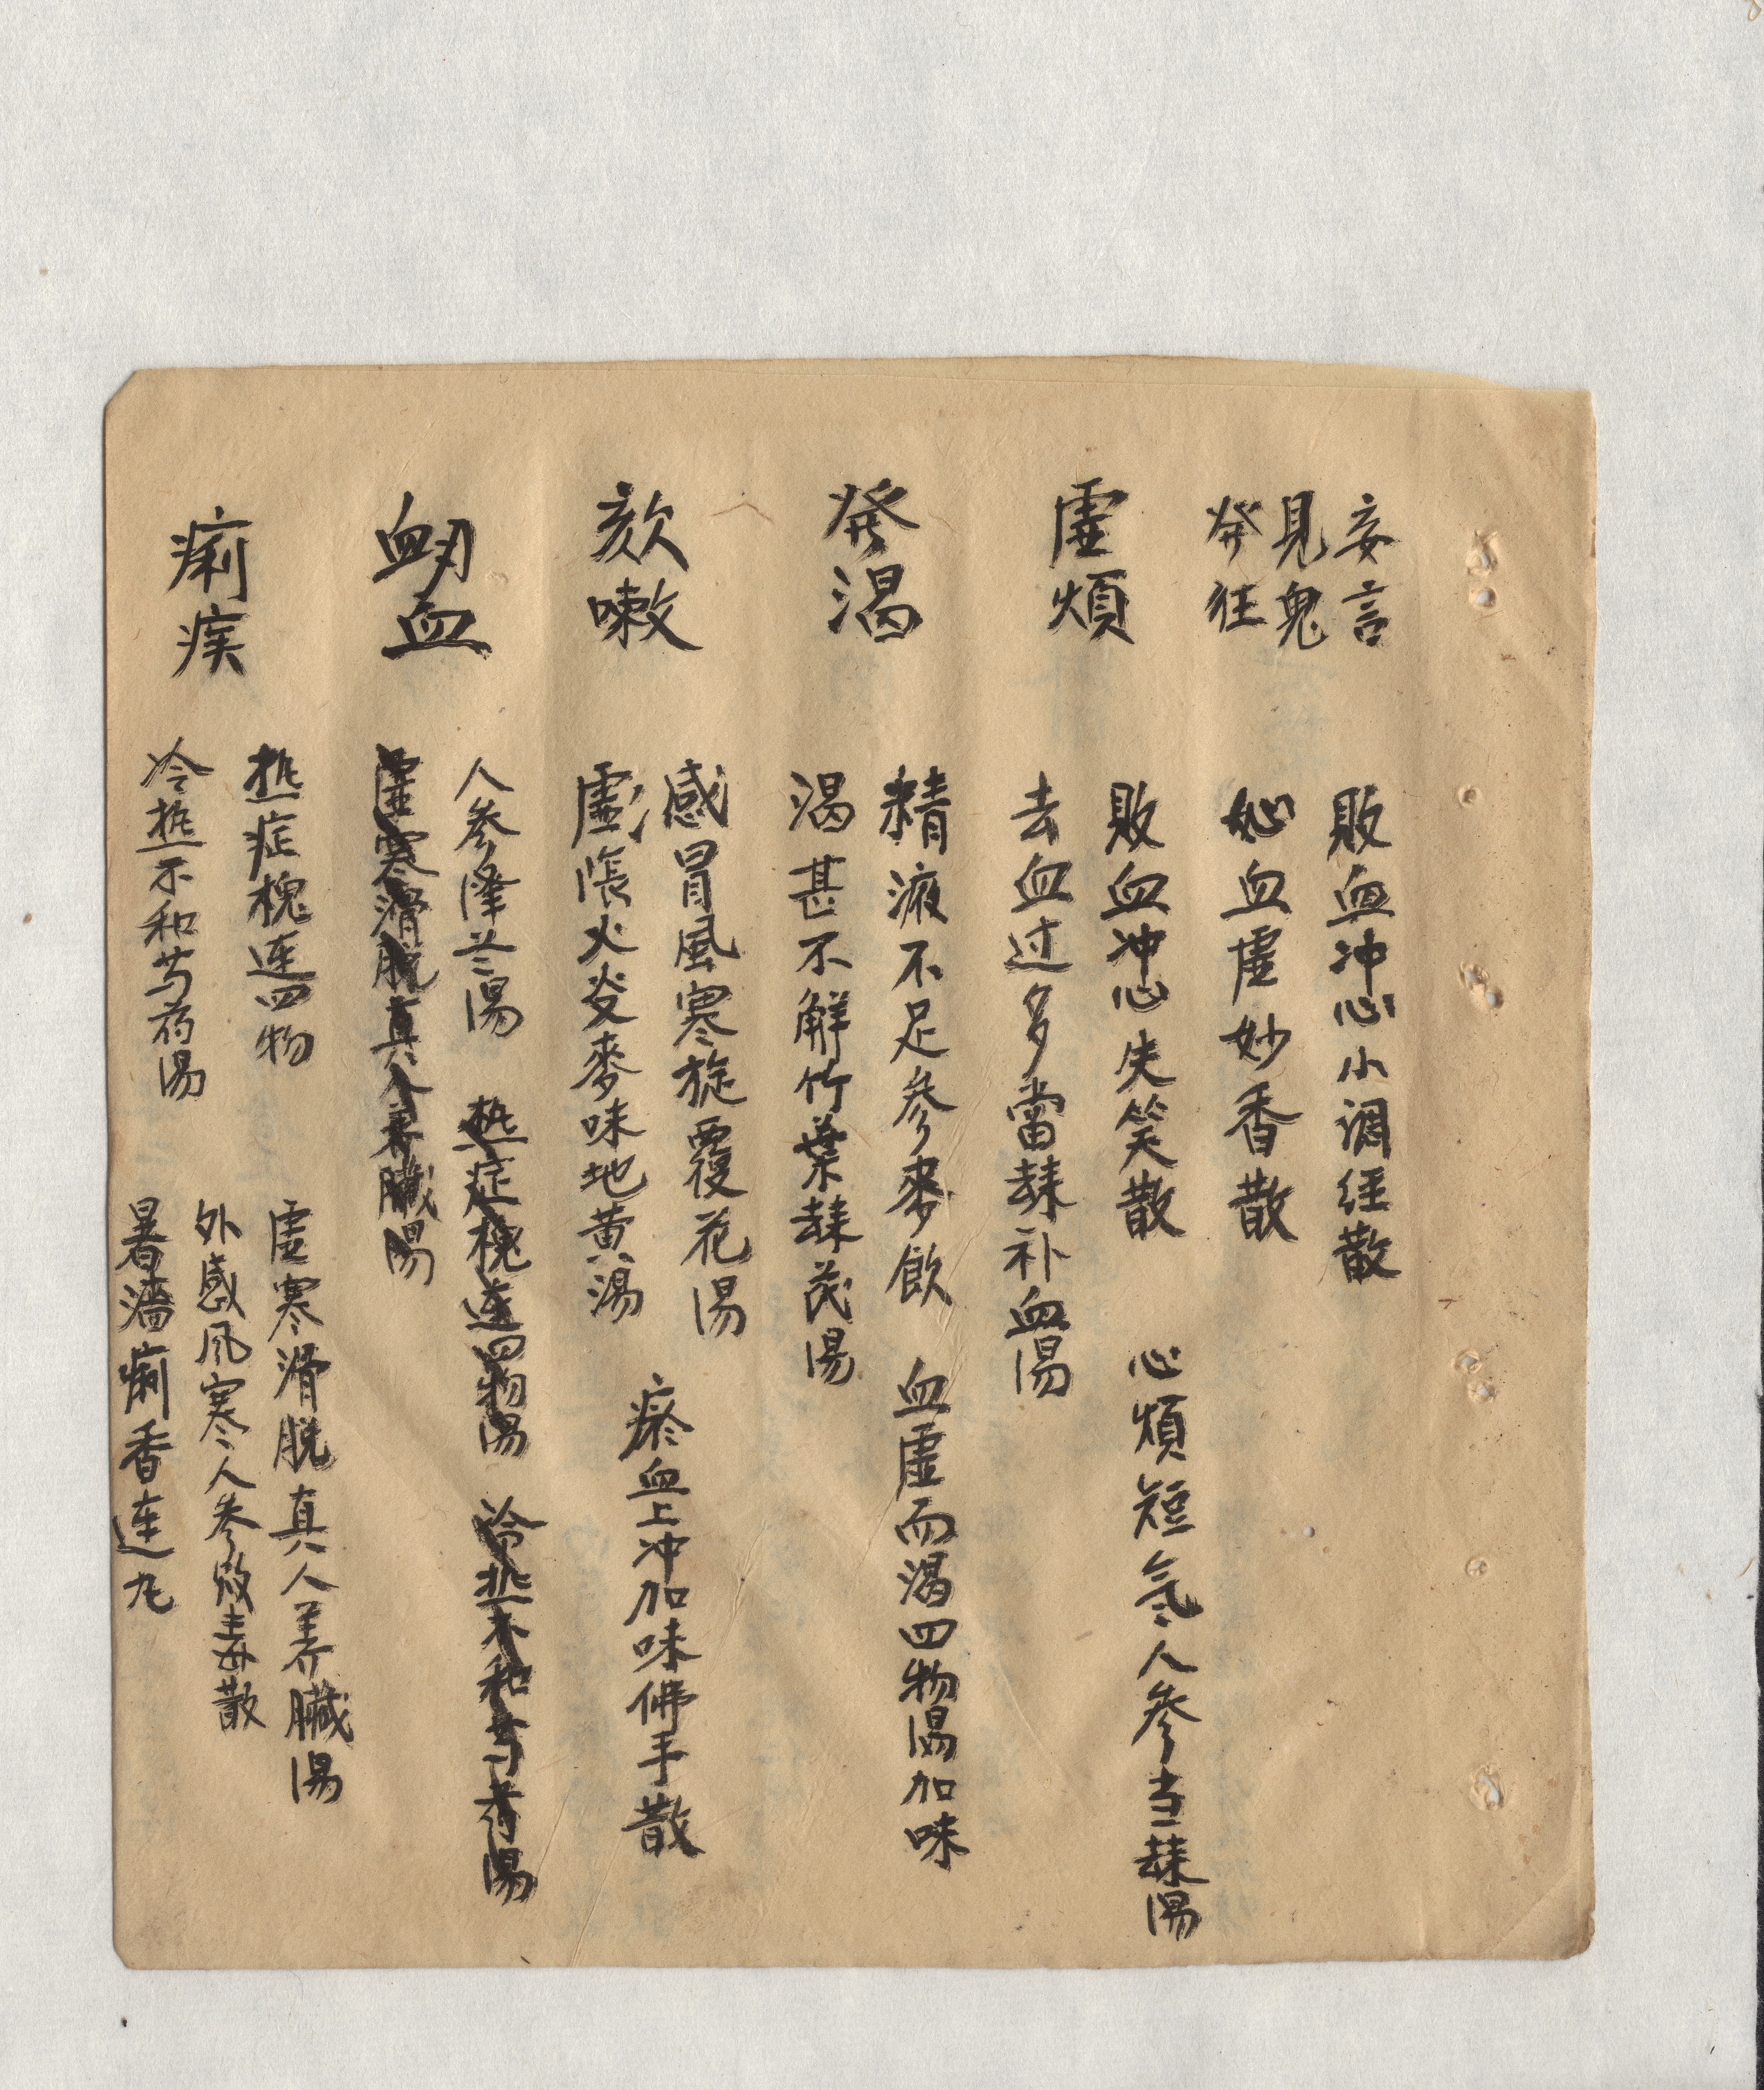 妄言
見鬼
發狂
敗血冲心小調经散
心血虛妙香散
虛煩
敗血冲心失笑散
心煩短氣人參当𧺆湯
去血过多當𧺆补血湯
發渴
精液不足參麥飲
血虛而渴四物湯加味
渴甚不解竹葉𧺆芪湯
欬嗽
感冒風寒旋覆花湯
瘀血上冲加味佛手散
虛悵火炎麥味地黄湯
衂血
人參降兰湯
热症槐連四物湯
冷热不和芍药湯
虛寒滑脱真人养臓湯
痢疾
热症槐連四物
冷热不和芍药湯
虛寒滑脱真人养臓湯
外感风寒人參敗毒散
暑濇痢香連丸